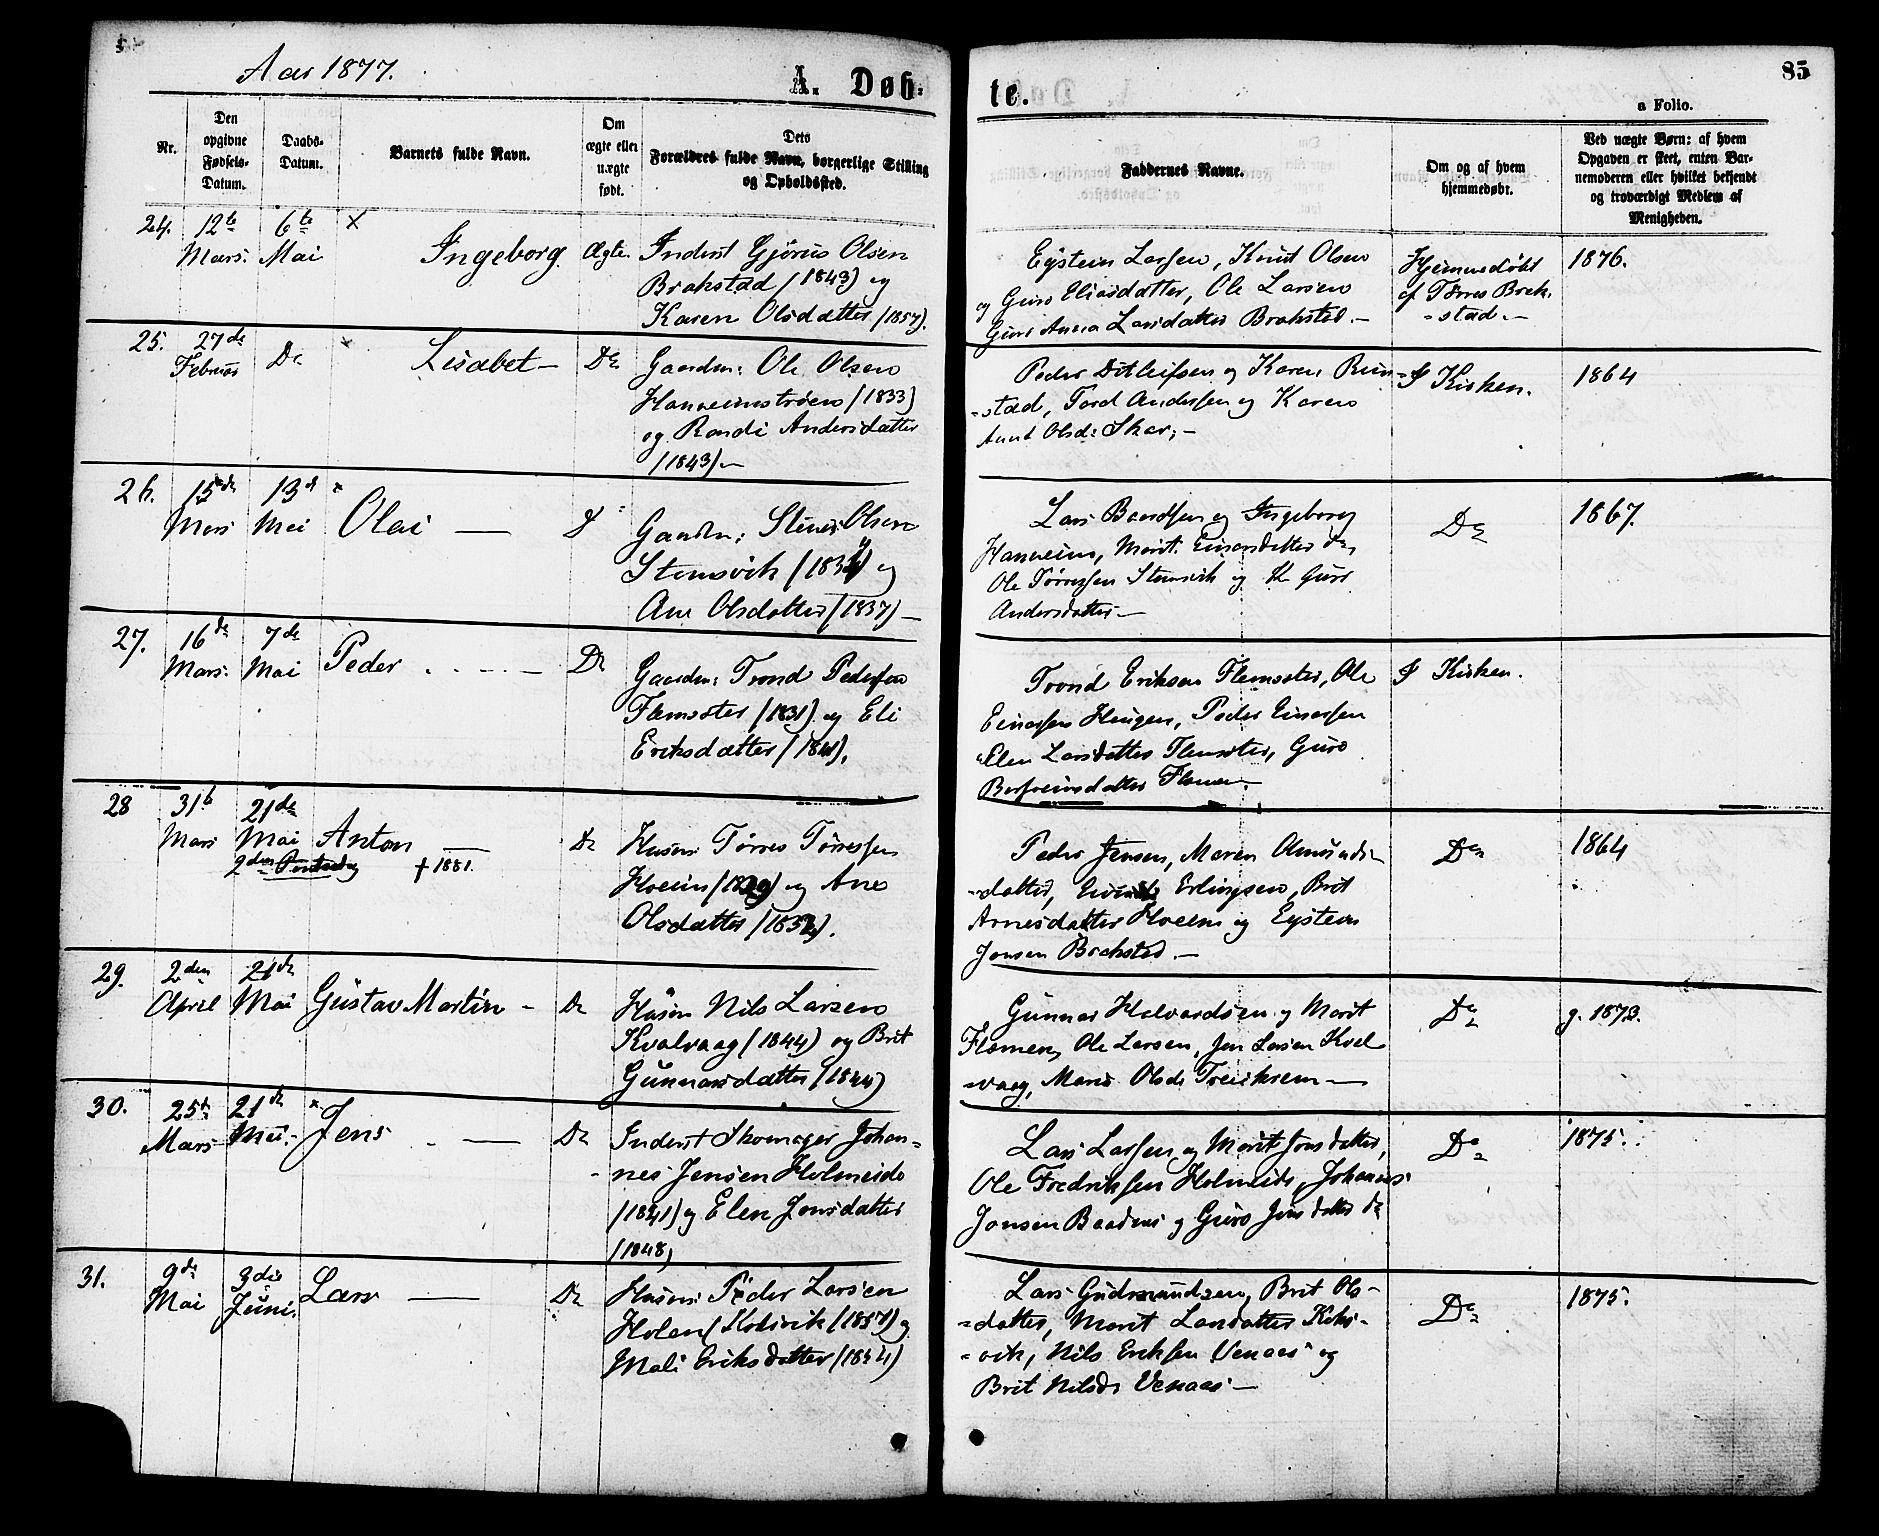 Aar 1877.
A. Døb-
te.
85
a Folio.
Nr.
Den opgivne Fødsels-Datum.
Daabs-Datum.
Barnets fulde Navn.
Om ægte eller uægte født.
Dets Forældres fulde Navn, borgerlige Stilling og Opholdssted.
Faddernes Navne.
Om og af hvem hjemmedøbt.
Ved uægte Børn: af hvem Opgaven er skeet, enten Barnemoderen eller hvilket bekjendt og troværdigt Medlem af Menigheden.
24. 12te Mars. 6te Mai × Ingeborg Ægte.
Inderst Gjørus Olsen
Brakstad (1843) og
Karen Olsdatter (1857).
Eystein Larsen, Knut Olsen
og Guro Eliasdatter, Ole Larsen
Guri Anna Larsdatter Brakstad.-
Hjemmedøbt
af Tørres Brak-
stad.-
1876.
25. 27de Februar Do × Lisabet - Do
Gaardm: Ole Olsen
(1833)
og Randi Andersdatter
(1843)-
Peder Ditlefsen og Karen Rim-
-stad, Tord Andersen og Karen
Olsd: Skar;-
I Kirken.
1864
26. 15de Mars 13de Mai × Olai -
Gaardm: Steiner Olsen
Stemsvik og
Ane Olsdatter (1837)-
Lars Baardsen og Ingeborg
Hanneim, Marit Einarsdatter do,
Ole Tørresen Stemsvik og Guri
Andersdatter-
Do
1867.
27. 16de Mars. 7de Mai Peder - Do
Gaardm: Trond Pedersen
Flemsæter (1831) og Eli
Eriksdatter (1841).
Trond Eriksen Flemsæter, Ole
Einarsen Haugen, Peder Einarsen
Elen Larsdatter Flemsæter, Guro
Flemmen.
I Kirken.
28 31te Mars 21de Mai 2den Pintsedag Anton - † 1881. Do
Husm: Tørres Tørresen
Hoeim og Ane
Olsdatter (1852).
Peder Jensen, Maren Amunds-
-datter, Erlingsen, Brit
Arnesdatter Hoeim og Eystein
Jonsen Brakstad.-
Do
1864
29. 2den April 21de Mai Gustav Martin - Do
Husm Nils Larsen
Kvalvaag (1844) og Brit
Gunnarsdatter (1844)
Gunnar Halvardsen og Marit
Flemmen, Ole Larsen, Jon Larsen Kval
-vaag, Marit Olsd: Treekrem-
Do
g. 1873.
30. 25de Mars 21de Mai. × Jens - Do
Inderst Skomager Johan-
-nes Jensen Holmeide
(1841) og Elen Jonsdatter
(1848)
Lars Larsen og Marit Jonsdatter,
Ole Fredriksen Holmeide, Johannes
Jonsen og Guro Jonsdatter do
Do
1875.
31. 9de Mai 3die Juni. Lars - Do
Husm: Peder Larsen
Holen (Kolsvik (1857) og
Mali Eriksdatter (1854)
Lars Gudmundsen, Brit Ols-
-datter, Marit Larsdatter Kols-
-vik, Nils Eriksen Venaas og
Brit Nilsd: Venaas-
Do
1875.